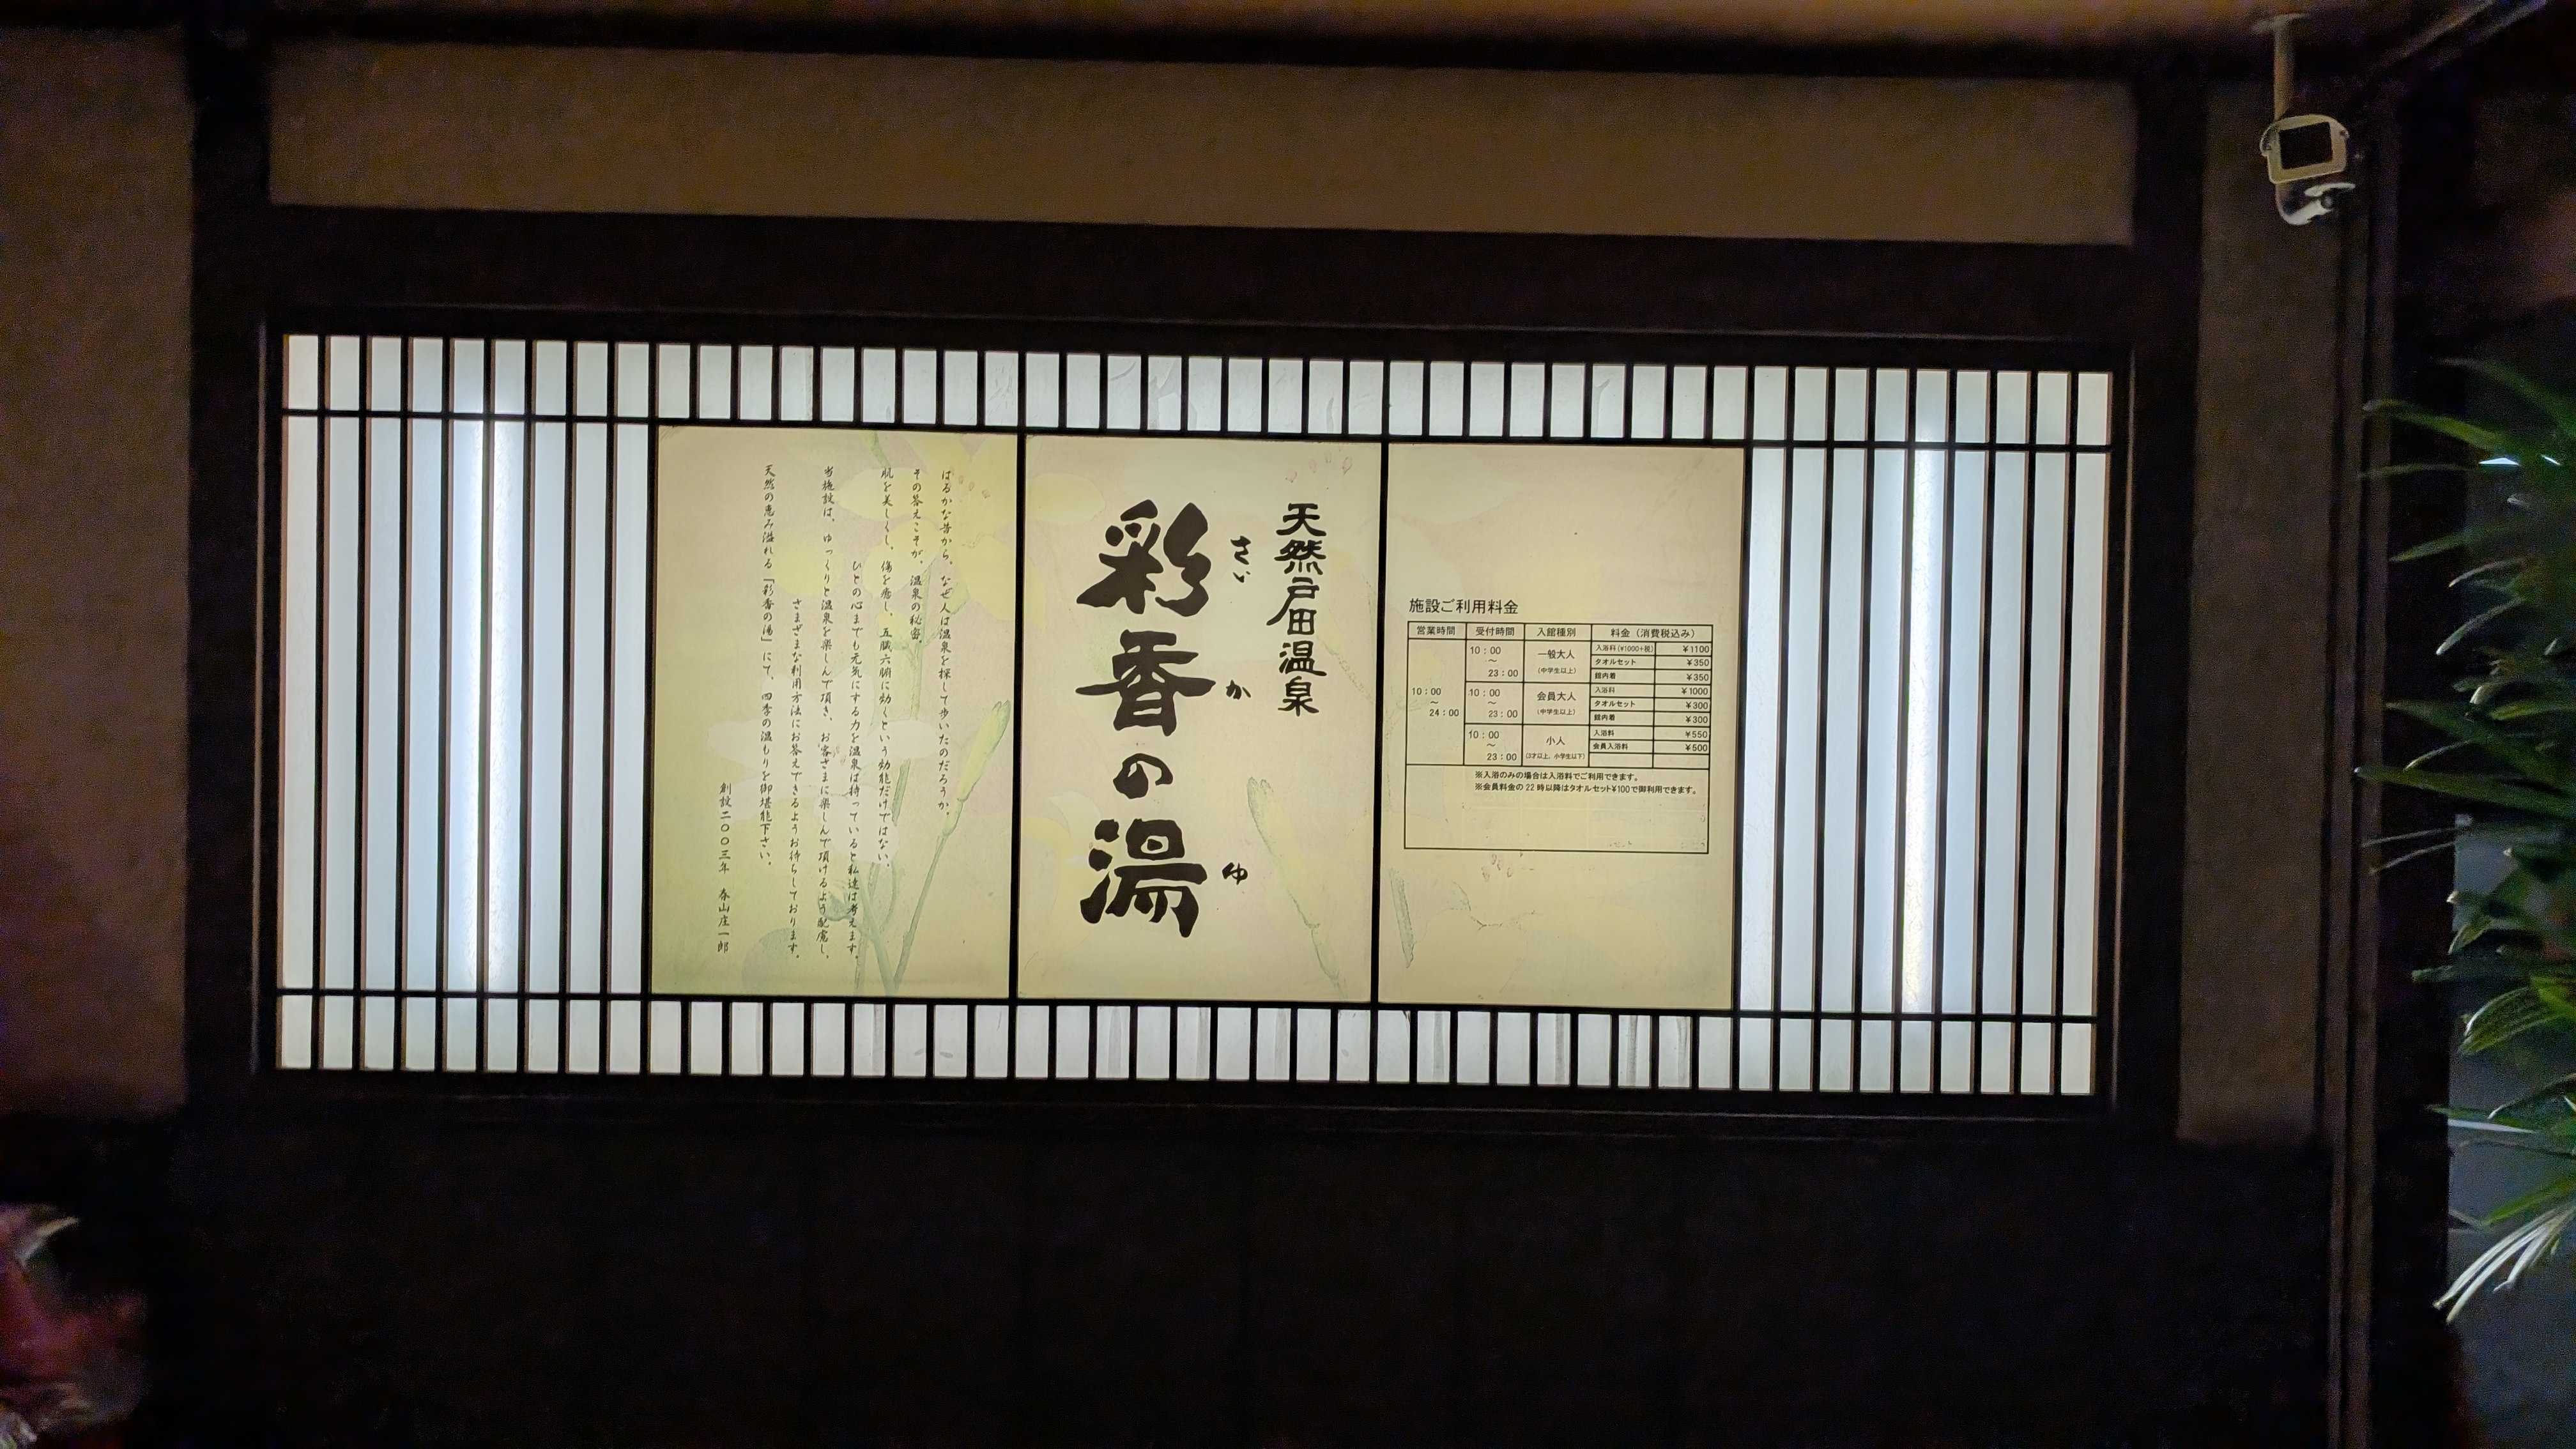 施設ご利用料金
営業時間 受付時間 入館種別 料金（消費税込み）
10：00 〜 24：00
10：00 〜 23：00 一般大人 （中学生以上）
入浴料（¥1000+税） ¥1100
タオルセット ¥350
館内着 ¥350
10：00 〜 23：00 会員大人 （中学生以上）
入浴料 ¥1000
タオルセット ¥300
館内着 ¥300
10：00 〜 23：00 小人 （3才以上、小学生以下）
入浴料 ¥550
会員入浴料 ¥500
※入浴のみの場合は入浴料でご利用できます。
※会員料金の 22 時以降はタオルセット¥100で御利用できます。
天然戸田温泉
彩香の湯
さい か ゆ
はるかな昔から、なぜ人は温泉を探して歩いたのだろうか。
その答えこそが、温泉の秘密。
肌を美しくし、傷を癒し、五臓六腑に効くという効能だけではない。
ひとの心までも元気にする力を温泉は持っていると私達は考えます。
当施設は、ゆっくりと温泉を楽しんで頂き、お客さまに楽しんで頂けるよう配慮し、
さまざまな利用方法にお答えできるようお待ちしております。
天然の恵み溢れる「彩香の湯」にて、四季の温もりを御堪能下さい。
創設二〇〇三年 春山庄一郎